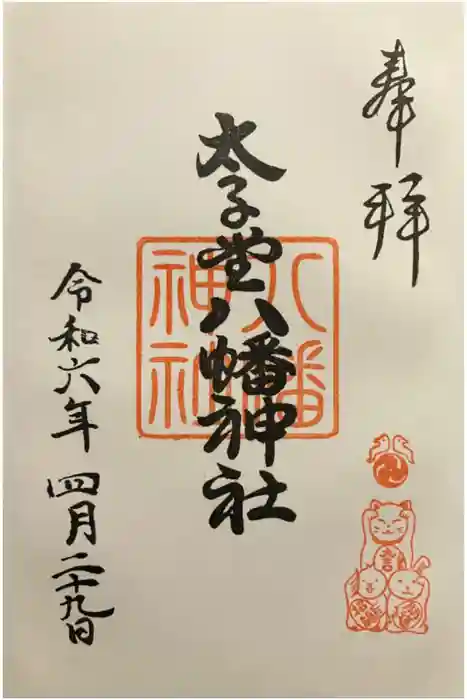 奉拝
太子堂八幡神社
八幡
神社
令和六年四月二十九日